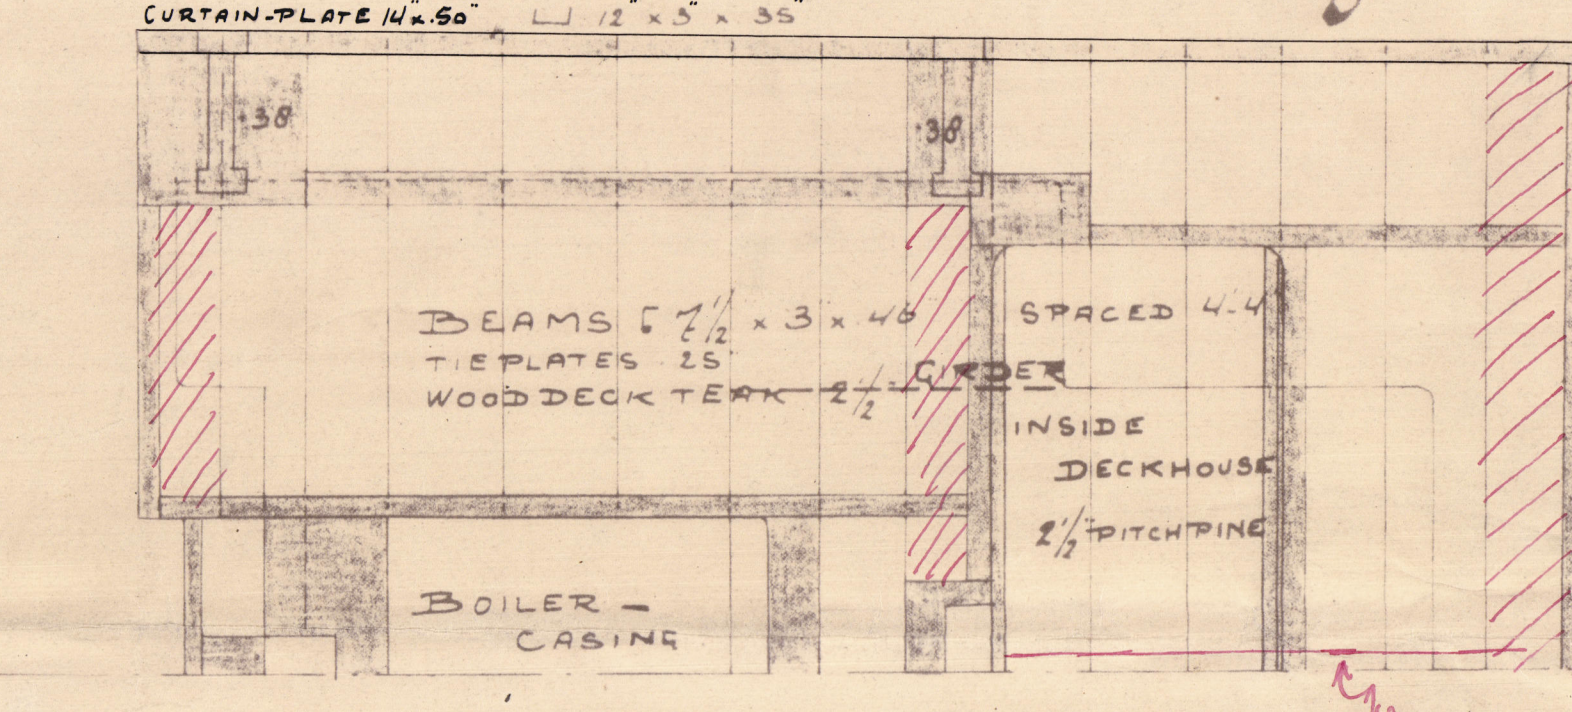 CURTAIN-PLATE 14" x .50" 12" x 3" x 35"
.38
.38
BEAMS 7½ x 3 x .46 SPACED 4'-4"
TIEPLATES 25
GIRDER
WOOD DECK TEAK 2½"
INSIDE
DECKHOUSE
2½" PITCHPINE
BOILER-
CASING